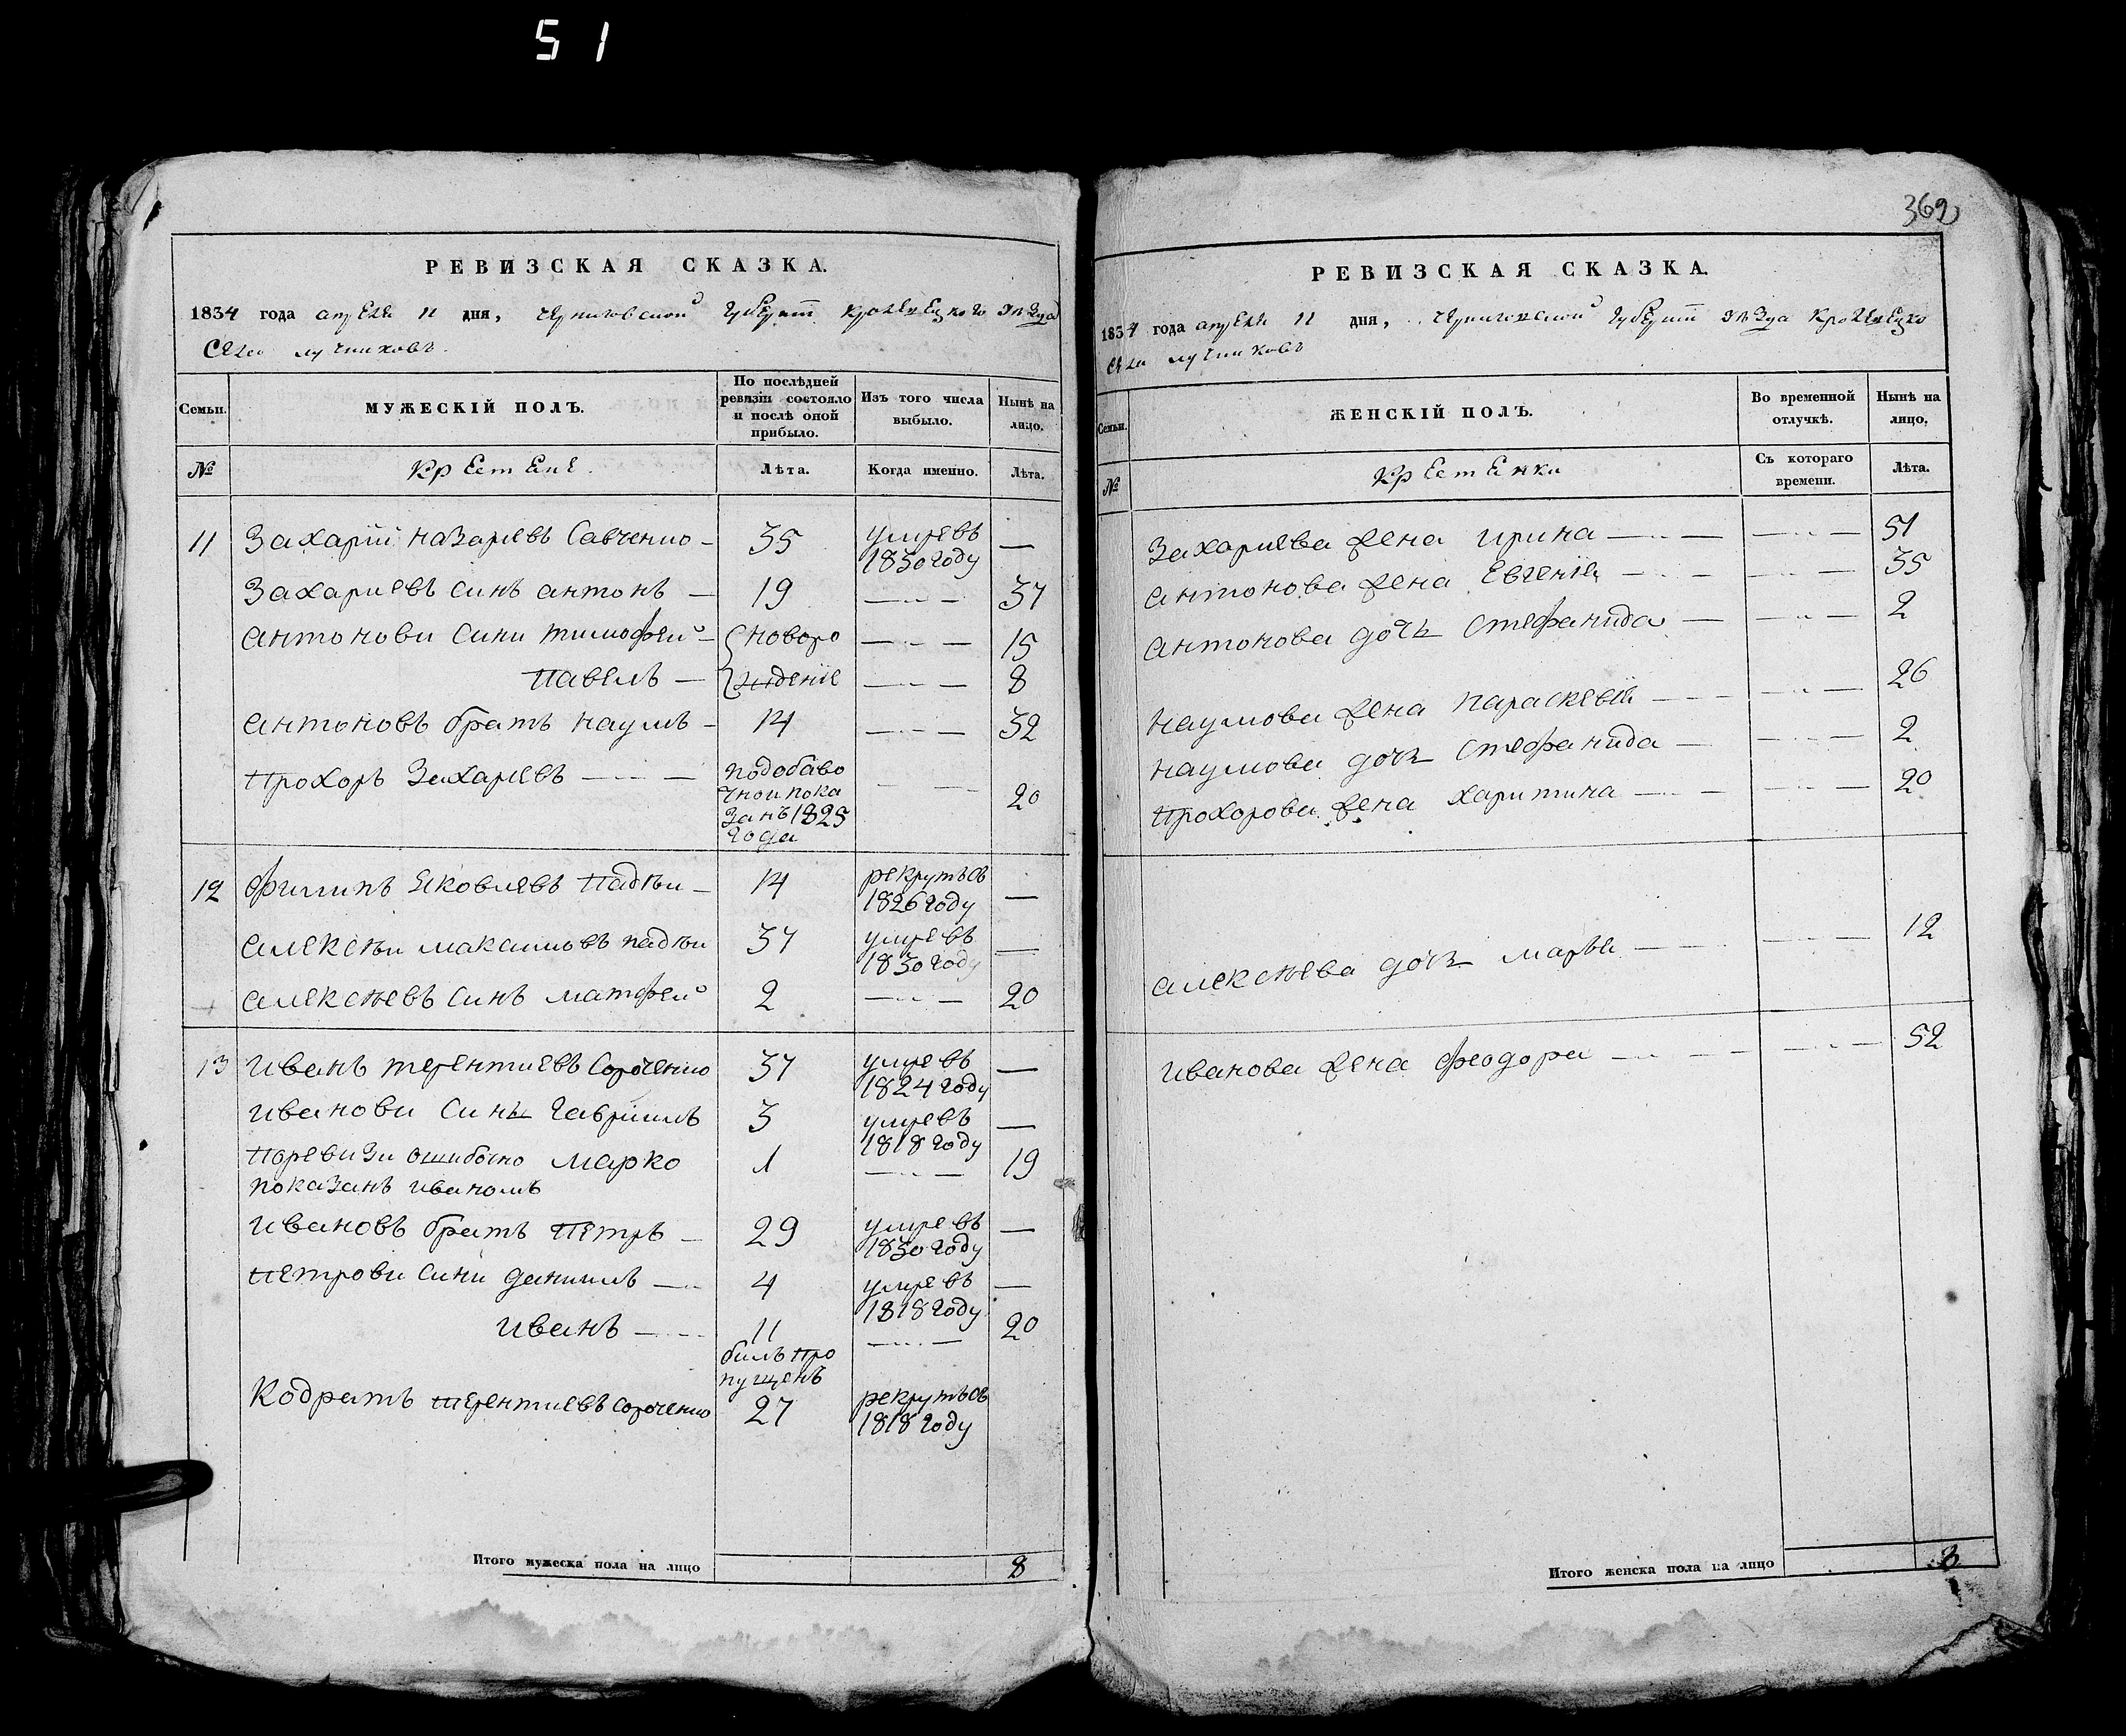 51
362
РЕВИЗСКАЯ СКАЗКА.
1834 года апреля 11 дня, черниговской губернии кролевецкого
села лучниковъ.
Семьи.
МУЖЕСКІЙ ПОЛЪ.
По послѣдней ревизіи состояло и послѣ оной прибыло.
Изъ того числа выбыло.
Нынѣ на лицо.
№ крестяне. Лѣта. Когда именно. Лѣта.
11 Захарий назариевъ Савченко — 35 умре въ 1830 году —
Захариевъ синъ антонъ — 19 — „ — 37
антонови сини тимофей — новоро — „ — 15
павелъ — ждение — „ — 8
антоновъ братъ наумъ — 14 — „ — 32
прохоръ Захариевъ — „ — подобавочной показанъ 1825 года — — 20
12 филипъ яковлевъ падѣи — 14 рекрутъ въ 1826 году —
алексѣи максимовъ падѣи 37 умре въ 1830 году —
алексѣевъ синъ матфей 2 — „ — 20
13 иванъ терентиевъ Сороченко 37 умре въ 1824 году —
иванови синъ гавриилъ 3 умре въ 1818 году —
поревизи ошибочно марко 1 — „ — 19
показанъ иваномъ
ивановъ братъ петръ — 29 умре въ 1830 году —
петрови сини даниилъ — „ 4 умре въ 1818 году —
иванъ — „ — 11 билъ пропущенъ — „ — 20
Кодратъ терентиевъ Сороченко 27 рекрутъ въ 1818 году
Итого мужеска пола на лицо 8
РЕВИЗСКАЯ СКАЗКА.
1834 года апреля 11 дня, черниговской губернии
села лучниковъ
Семьи.
ЖЕНСКІЙ ПОЛЪ.
Во временной отлучкѣ.
Нынѣ на лицо.
№ крестенки Съ котораго времени. Лѣта.
Захариева жена ирина — „ — — „ — 51
антонова жена Евгения — „ — — „ — 35
антонова дочь стефанида — — „ — 2
наумова жена параскевия — „ — — „ — 26
наумова дочь стефанида — — „ — 2
прохорова жена харитина — „ — — „ — 20
алексѣева дочь марья — „ — — „ — 12
иванова жена феодора — „ — — „ — 52
Итого женска пола на лицо 8